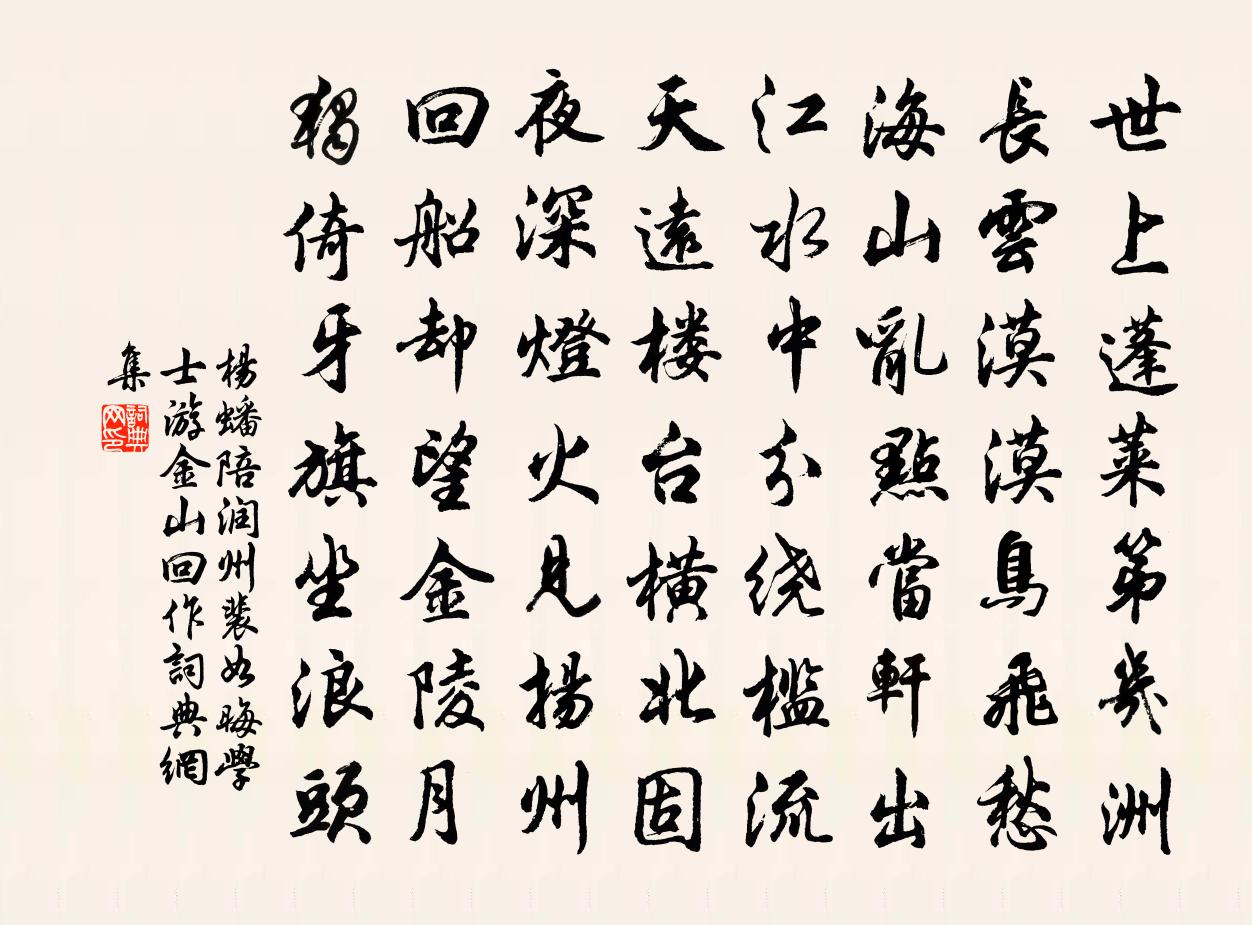 世上蓬莱第幾洲
長雲漠漠鳥飛愁
海山亂點當軒出
江水中分绕檻流
天遠楼台橫北固
夜深燈火見揚州
回船却望金陵月
獨倚牙旗坐浪頭
楊蟠陪润州裴如晦學
士游金山回作詞典網
集
詞典
网印